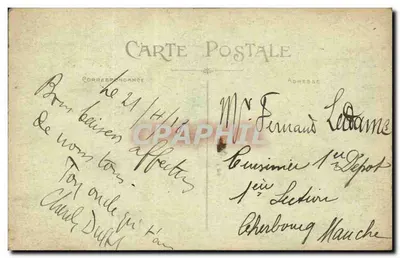 CARTE POSTALE
CORRESPONDANCE
ADRESSE
Le 21/4/16
Bons baisers affectueux
de nous tous.
Ton oncle qui t'aime
Charles
Mr Fernand Ledamé
Cuisinier 1er Dépôt
1ère Section
Cherbourg Manche
CPAPHIL